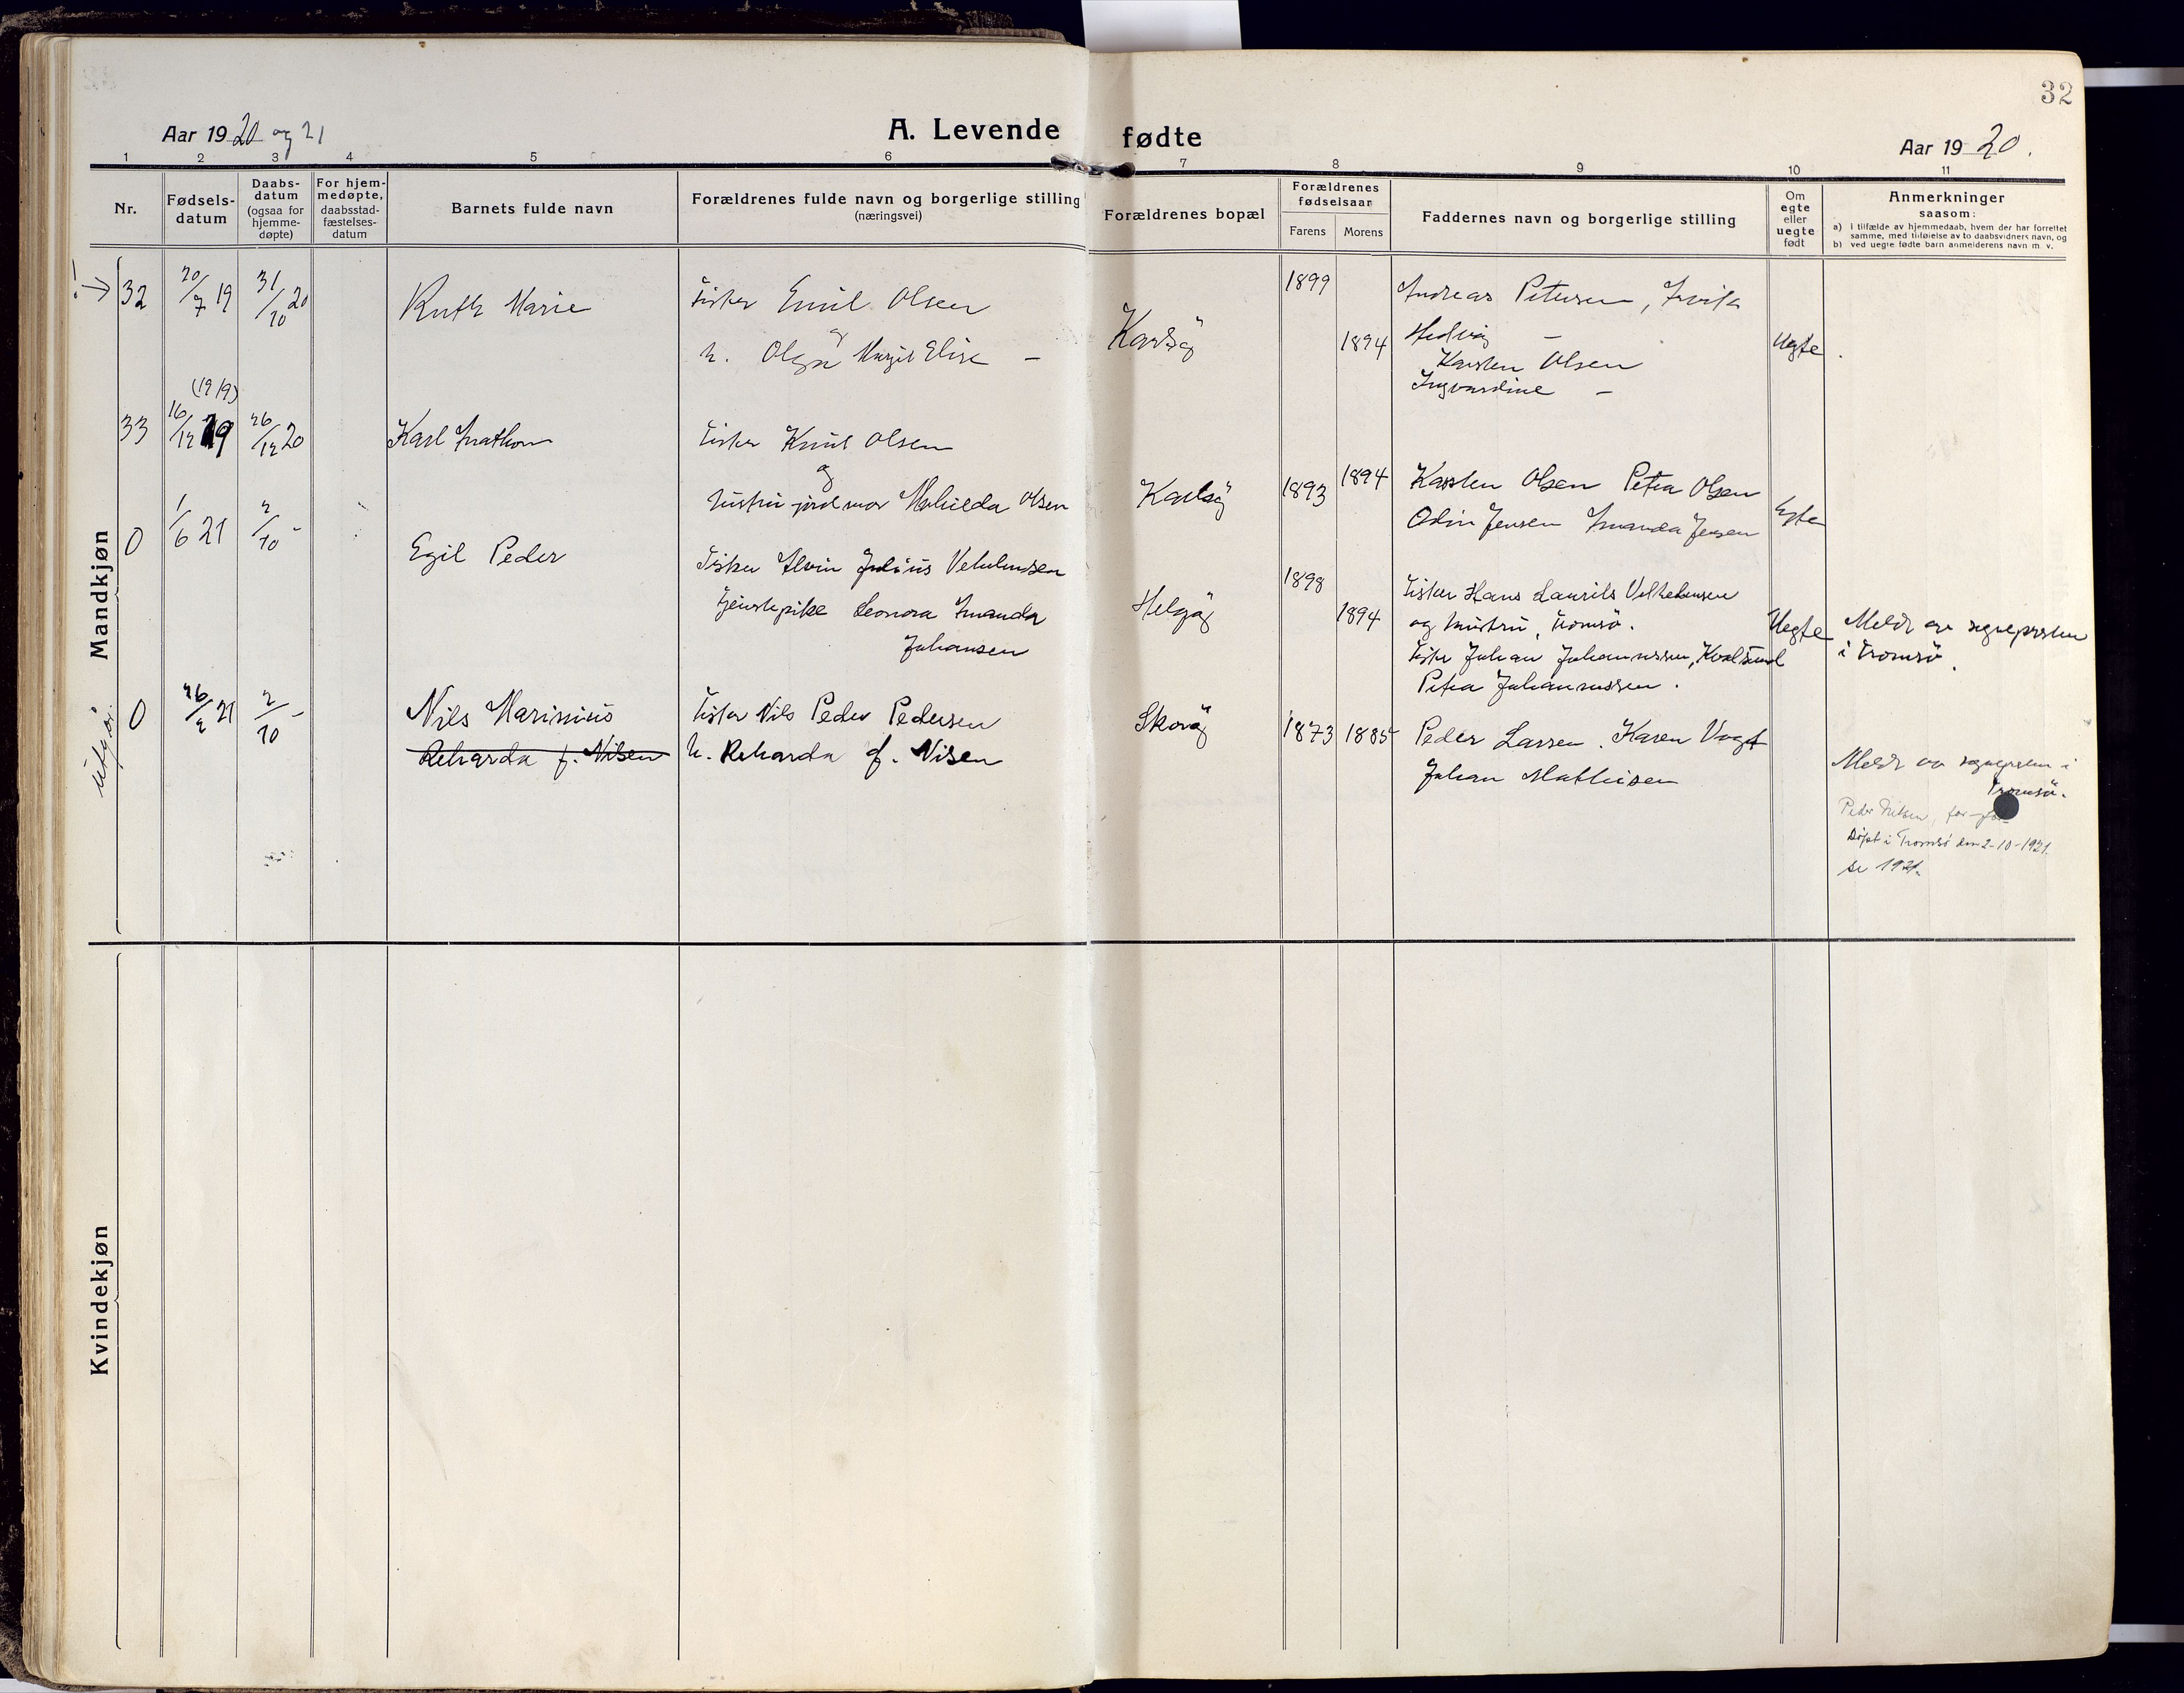 32
Aar 1920 og 21
A. Levende fødte
Aar 1920.
1 2 3 4 5 6 7 8 9 10 11
Nr.
Fødsels-
datum
Daabs-
datum
(ogsaa for
hjemme-
døpte)
For hjem-
medøpte,
daabsstad-
fæstelses-
datum
Barnets fulde navn
Forældrenes fulde navn og borgerlige stilling
(næringsvei)
Forældrenes bopæl
Forældrenes
fødselsaar
Farens Morens
Faddernes navn og borgerlige stilling
Om
egte
eller
uegte
født
Anmerkninger
saasom:
a) i tilfælde av hjemmedaab, hvem der har forrettet
samme, med tilføielse av to daabsvidners navn, og
b) ved uegte fødte barn anmelderens navn m. v.
Mandkjøn
32 20/7 19 31/10 20 Ruth Marie
Fisker Emil Olsen
og
h. Olga Margit Elise –
Karlsø
1899
1894
Andreas Petersen,
Hedvig –
Karsten Olsen
Ingvardine –
Uegte
(1919)
33 16/12 19 26/12 20 Karl
Fisker Knut Olsen
og
hustru jordmor Mathilda Olsen
Karlsø
1893 1894
Karsten Olsen Petra Olsen
Odin Jensen Amanda Jensen
Egte
0 1/6 21 2/10 – Egil Peder
Fisker Alvin Julius
Tjenstepike Leonora Amanda
Johansen
Helgø
1898
1894
Fisker Hans Laurits
og hustru, Tromsø.
Fisker Johan Johannessen, Kvalsund
Petra Johannessen.
Uegte
Meldt av sogneprsten
i Tromsø.
utgår
0 26/2 21 2/10 – Nils Marinius
Reharda f. Nilsen
Fisker Nils Peder Pedersen
h. Reharda f. Nilsen
Skorøy
1873 1885
Peder Larsen. Karen Vogt
Johan Mathisen
Meldt av sogneprsten i
Tromsø.
Peder Nilsen,
Døpt i Tromsø den 2-10-1921.
se 1921.
Kvindekjøn